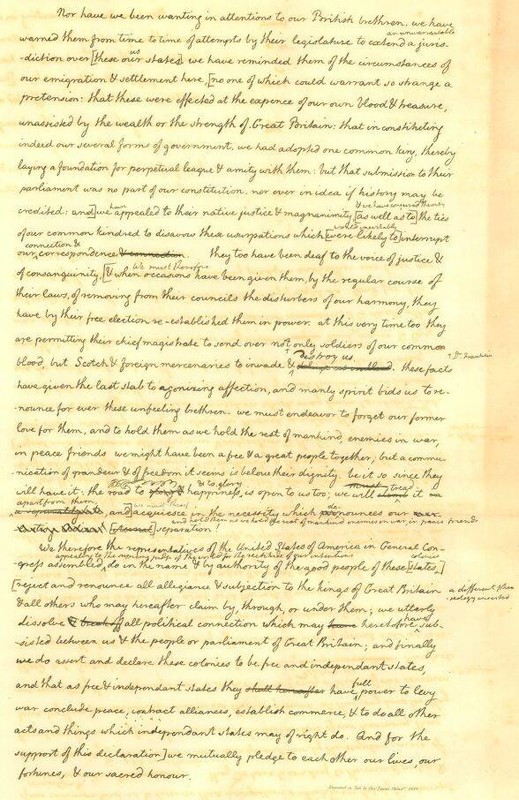 Nor have we been wanting in attentions to our British brethren. we have
an unwarrantable
warned them from time to time of attempts by their legislature to extend a juris-
us
-diction over [these our states] we have reminded them of the circumstances of
our emigration & settlement here, [no one of which could warrant so strange a
pretension: that these were effected at the expence of our own blood & treasure,
unassisted by the wealth or the strength of Great Britain: that in constituting
indeed our several forms of government, we had adopted one common king, thereby
laying a foundation for perpetual league & amity with them: but that submission to their
parliament was no part of our constitution, nor ever in idea if history may be
have & we have conjured them by
credited: and] we appealed to their native justice & magnanimity [as well as to] the ties
would inevitably
of our common kindred to disavow these usurpations which [were likely to] interrupt
connection &
our correspondence & connection. they too have been deaf to the voice of justice &
We must therefore
of consanguinity, [& when occasions have been given them, by the regular course of
their laws, of removing from their councils the disturbers of our harmony, they
have by their free election re-established them in power. at this very time too they
are permitting their chief magistrate to send over not only soldiers of our common
destroy us
blood, but Scotch & foreign mercenaries to invade & deluge us in blood. these facts
have given the last stab to agonizing affection, and manly spirit bids us to re-
nounce for ever these unfeeling brethren. we must endeavor to forget our former
love for them, and to hold them as we hold the rest of mankind, enemies in war,
in peace friends. we might have been a free & a great people together; but a commu-
nication of grandeur & of freedom it seems is below their dignity. be it so, since they
& to glory
will have it: the road to glory & happiness is open to us too; we will climb it
apart from them
and acquiesce in the necessity which denounces our
and hold them as we hold the rest of mankind enemies in war, in peace friends
[eternal] separation!
We therefore the representatives of the United States of America in General Con-
appealing to the supreme judge of the world for the rectitude of our intentions colonies
-gress assembled, do in the name & by authority of the good people of these [states,]
[reject and renounce all allegiance & subjection to the kings of Great Britain
a different phra-
-seology inserted
& all others who may hereafter claim by, through, or under them; we utterly
have
dissolve & break off all political connection which may have heretofore sub-
-sisted between us & the people or parliament of Great Britain; and finally
we do assert and declare these colonies to be free and independant states,
full
and that as free & independant states they shall hereafter have power to levy
war conclude peace, contract alliances, establish commerce, & to do all other
acts and things which independant states may of right do. And for the
support of this declaration] we mutually pledge to each other our lives, our
fortunes, & our sacred honour.